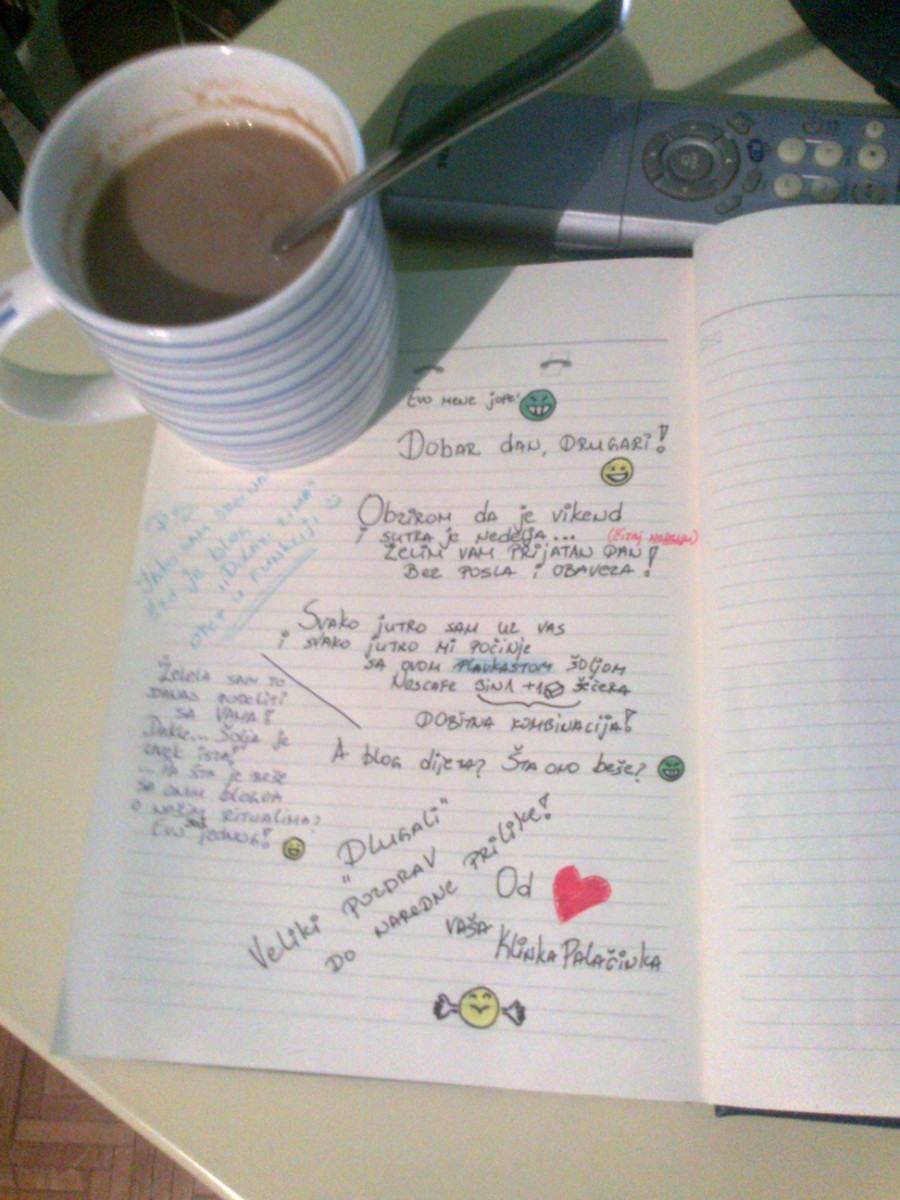 Evo mene jope!
Dobar dan, drugari!
Obzirom da je vikend
i sutra je nedelja...
(čitaj
želim vam prijatan dan!
Bez posla i obaveza!
Svako jutro sam uz vas
i svako jutro mi počinje
sa ovom plavkastom šoljom
Nescafe 3in1 +1 šećera
Dobitna kombinacija!
A blog dijeta? Šta ono beše?
P.S.
Jako sam srećna
što je blog
"Dlugali"
opet u funkciji
Želela sam to
danas podeliti
sa vama!
Dakle... Šolja je
uvek ista!
... Pa šta je beše
sa onim blogom
o našim ritualima?
Evo jednog!
"Dlugali"
Veliki pozdrav
do naredne prilike!
Od
vaša
Klinka Palačinka